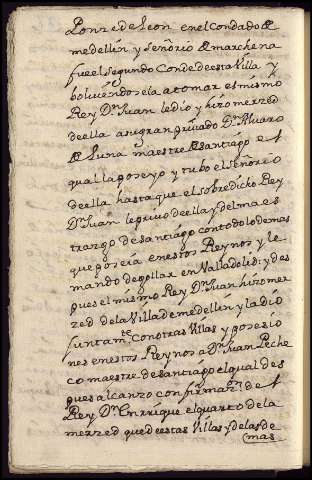 Ponze de Leon en el Condado de
medellin y señorio de marchena
fue el segundo Conde de esta Villa y
bolviendosela a tomar el mismo
Rey Dn. Juan le dio y hizo merzed
de ella a su gran privado Dn. Alvaro
de Luna maestre de santiago el
qual la poseyo y tubo el señorio
de ella hasta que el sobredicho Rey
Dn. Juan le privo de ella y del maes
trazgo de santiago con todo lo demas
que poseia en estos Reynos y le
mando degollar en Valladolid: y des
pues el mismo Rey Dn. Juan hizo mer
zed de la Villa de medellin y la dio
juntamte. con otras Villas y posesio
nes en estos Reynos a Dn. Juan Peche
co maestre de santiago el qual des
pues alcanzo confirmazn. de el
Rey Dn. Enrrique el quarto de la
merzed que de estas Villas y de las de
mas